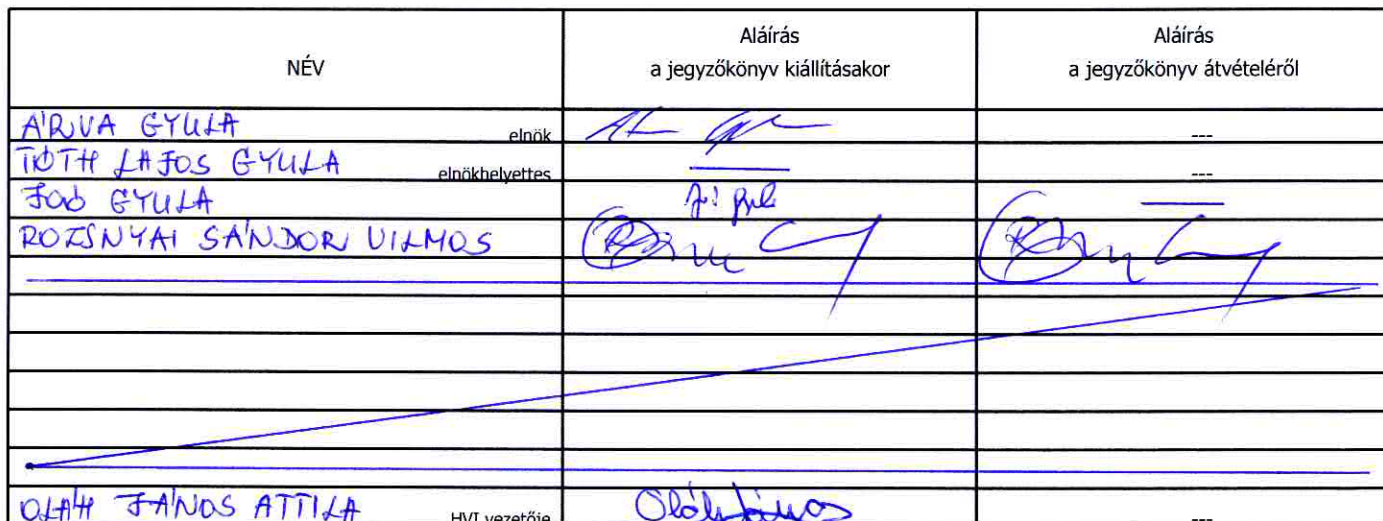 NÉV
Aláírás
a jegyzőkönyv kiállításakor
Aláírás
a jegyzőkönyv átvételéről
ÁRVA GYULA elnök ---
TÓTH LAJOS GYULA elnökhelyettes ---
JOÓ GYULA
ROZSNYAI SÁNDOR VILMOS
OLÁH JÁNOS ATTILA HVI vezetője Oláh János ---